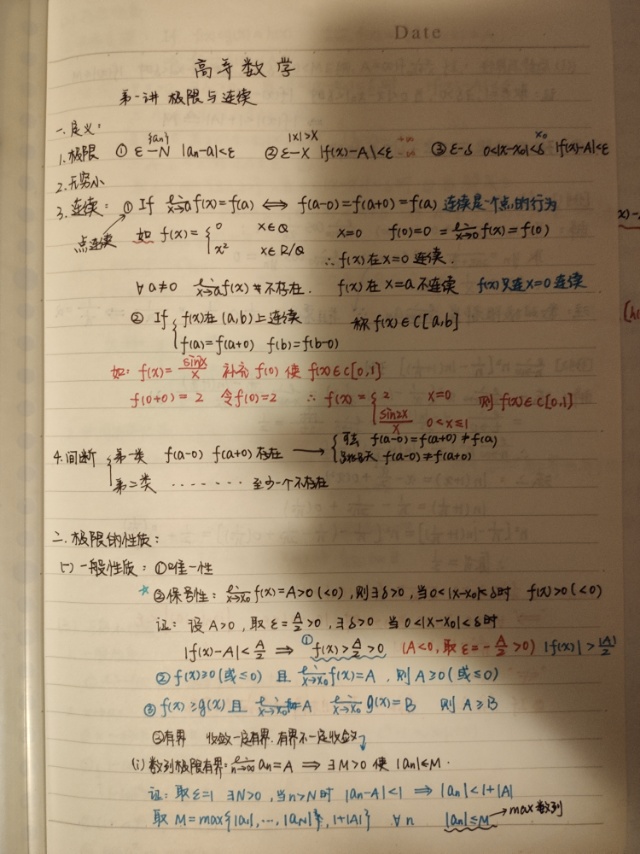 Date
高等数学
第一讲 极限与连续
一. 定义:
1. 极限 ① ε-N {an} |an-a|<ε ② ε-X |x|>X |f(x)-A|<ε +∞ -∞ ③ ε-δ 0<|x-x₀|<δ x₀ |f(x)-A|<ε
2. 无穷小
3. 连续: ① If lim x→a f(x)=f(a) ⟺ f(a-0)=f(a+0)=f(a) 连续是一个点的行为
点连续 如 f(x)={0 x∈Q x=0 f(0)=0=lim x→0 f(x)=f(0)
x² x∈R/Q ∴f(x)在x=0连续.
∀a≠0 lim x→a f(x) 不存在. f(x)在x=a不连续 f(x)只连x=0连续
② If {f(x)在(a,b)上连续 称f(x)∈C[a,b]
f(a)=f(a+0) f(b)=f(b-0)
如: f(x)=sin2x/x 补充f(0) 使f(x)∈C[0,1]
f(0+0)=2 令f(0)=2 ∴f(x)={2 x=0 则f(x)∈C[0,1]
sin2x/x 0<x≤1
4. 间断 {第一类 f(a-0) f(a+0)存在 → {可去 f(a-0)=f(a+0)≠f(a)
跳跃 f(a-0)≠f(a+0)
第二类 ········ 至少一个不存在
二. 极限的性质:
(一) 一般性质: ①唯一性
*②保号性: lim x→x₀ f(x)=A>0(<0), 则∃δ>0, 当0<|x-x₀|<δ时 f(x)>0(<0)
证: 设A>0, 取ε=A/2>0, ∃δ>0 当0<|x-x₀|<δ时
|f(x)-A|<A/2 ⇒ ①f(x)>A/2>0 (A<0, 取ε=-A/2>0) |f(x)|>|A|/2
②f(x)≥0(或≤0) 且 lim x→x₀ f(x)=A, 则A≥0(或≤0)
③f(x)≥g(x)且 lim x→x₀ =A lim x→x₀ g(x)=B 则A≥B
③有界 收敛一定有界, 有界不一定收敛
(i) 数列极限有界: lim n→∞ an=A ⇒ ∃M>0 使|an|≤M.
证: 取ε=1 ∃N>0, 当n>N时 |an-A|<1 ⇒ |an|<1+|A|
取M=max{|a₁|,...,|aN|, 1+|A|} ∀n |an|≤M → max数列